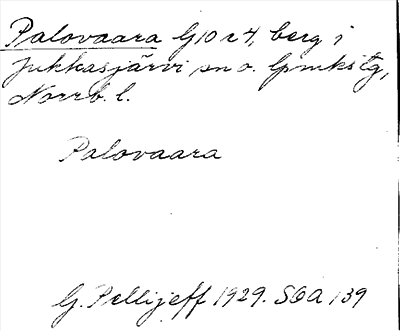 Palovaara G10 r 4, berg i
Jukkasjärvi sn o. lpmkstg,
Norrb. l.
Palovaara
G. Pellijeff 1929. SOA 139